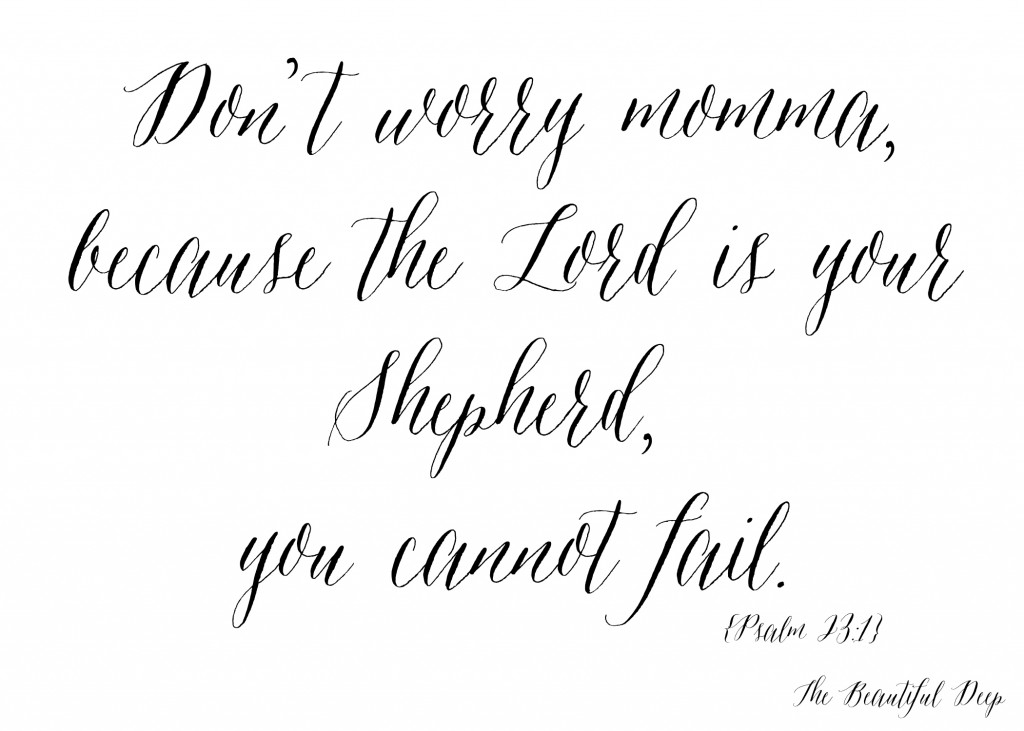 Don't worry momma,
because the Lord is your
Shepherd,
you cannot fail.
{Psalm 23:1}
The Beautiful Deep